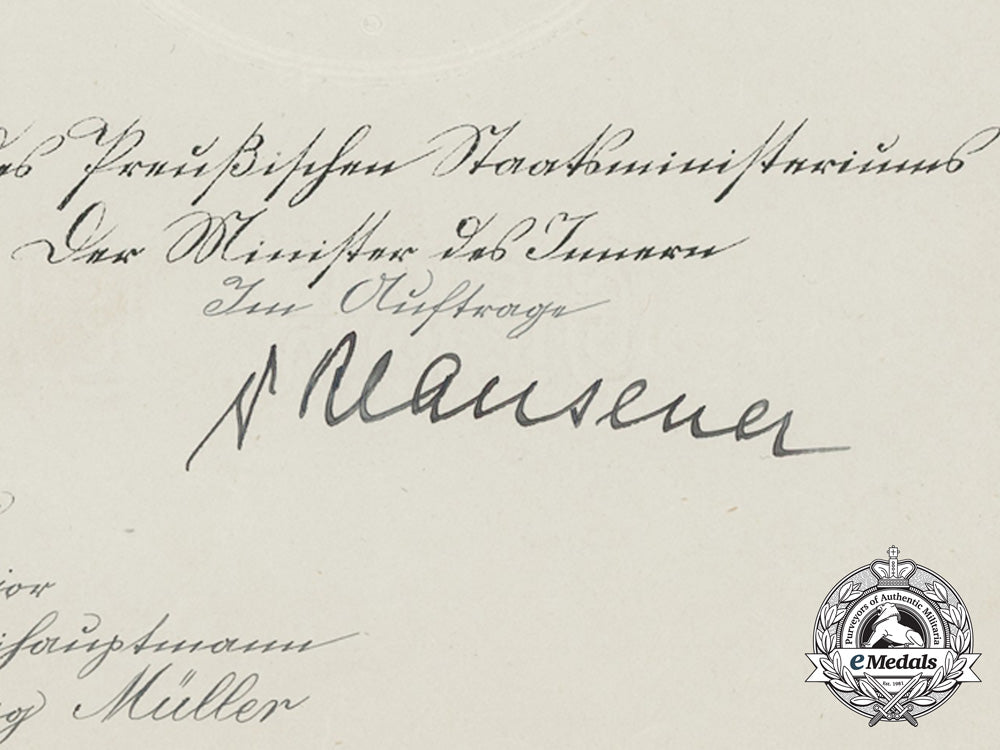 des Preußischen Staatsministeriums
Der Minister des Innern
Im Auftrage
Klausener
ior
ihauptmann
g Müller
Purveyors of Authentic Militaria
eMedals
Est. 1981